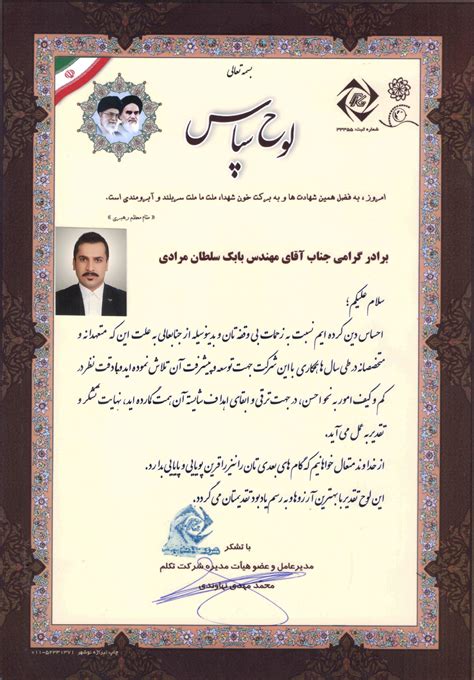 بسمه تعالی
شماره ثبت: ۳۳۳۵۵
لوح سپاس
امروز، به فضل همین شهادت ها و به برکت خون شهدا، ملت ما ملت سربلند و آبرومندی است.
« مقام معظم رهبری »
برادر گرامی جناب آقای مهندس بابک سلطان مرادی
سلام علیکم؛
احساس دین کرده ایم نسبت به زحمات بی وقفه تان و بدینوسیله از جنابعالی به علت این که متعهدانه و
متخصصانه در طی سال ها همکاری با این شرکت جهت توسعه و پیشرفت آن تلاش نموده اید و با دقت نظر در
کم و کیف امور به نحو احسن، در جهت ترقی و ابقای اهداف شایسته آن همت گمارده اید، نهایت تشکر و
تقدیر به عمل می آید.
از خداوند متعال خواهانیم که گام های بعدی تان را نیز قرین پویایی و پایایی بدارد.
این لوح تقدیر با بهترین آرزوها و به رسم یادبود تقدیمتان می گردد.
با تشکر
مدیرعامل و عضو هیأت مدیره شرکت تکلم
محمد مهدی نهاوندی